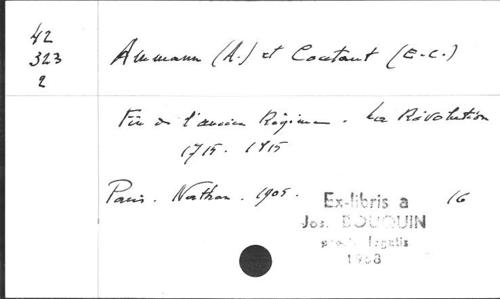 42
323
2
Ammann (A.) et Coutant (E-C.)
Fin de l'ancien Régime. La Révolution
1715. 1815
Paris. Nathan. 1905. 16
Ex-libris a
Jos. BOUQUIN
legatis
1968